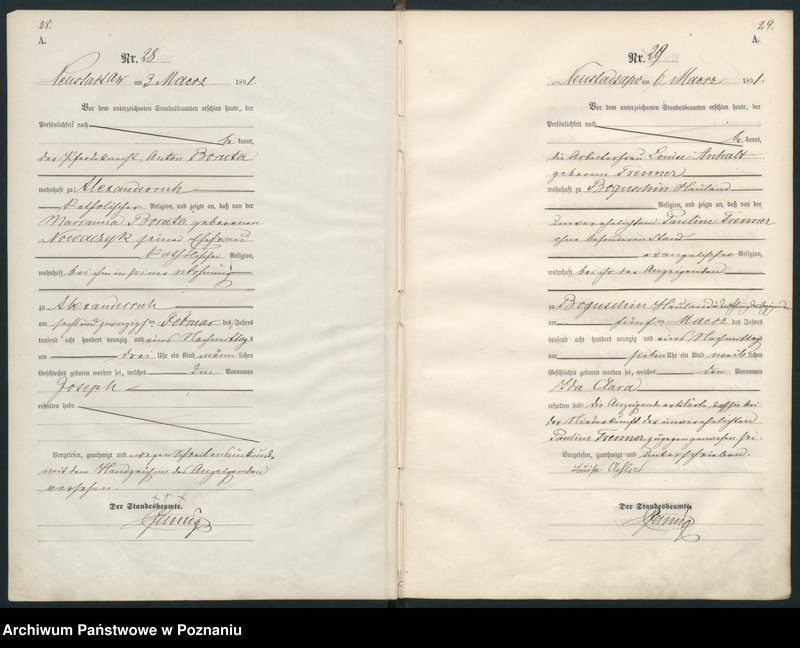 28.
A.
Nr. 28
Neustadt a/W am 3 Maerz 1891.
Vor dem unterzeichneten Standesbeamten erschien heute, der
Persönlichkeit nach
be kannt,
der Pferdeknecht Anton Boruta
wohnhaft zu Alexanderruh
katholischer Religion, und zeigte an, daß von der
Marianna Boruta geborenen
Nowaczyk seine Ehefrau
katholischer Religion,
wohnhaft bei ihm in seiner Wohnung
zu Alexanderruh
am sechsundzwanzigsten Februar des Jahres
tausend acht hundert neunzig und eins Nachmittags
um drei Uhr ein Kind männlichen
Geschlechts geboren worden sei, welches den Vornamen
Joseph
erhalten habe
Vorgelesen, genehmigt und wegen Schreibensunkunde
mit dem Handzeichen des Anzeigenden
versehen.
+++
Der Standesbeamte.
29.
A
Nr. 29
am 6 Maerz 1891.
Vor dem unterzeichneten Standesbeamten erschien heute, der
Persönlichkeit nach
be kannt,
die Arbeiterfrau Louise Anhalt
geborene Trenner
wohnhaft zu Boguschin Hauland
Religion, und zeigte an, daß von der
unverehelichten Pauline Trenner
ohne besonderen Stand
evangelischer Religion,
wohnhaft bei ihr der Anzeigenden
zu Boguschin Hauland in der Wohnung der Anzeigenden
am fünften Maerz des Jahres
tausend acht hundert neunzig und eins Nachmittag
um sieben Uhr ein Kind weiblichen
Geschlechts geboren worden sei, welches den Vornamen
Ida Clara
erhalten habe die Anzeigende erklärte, daß sie bei
der Niederkunft der unverehelichten
Pauline Trenner zugegen gewesen sei.
Vorgelesen, genehmigt und unterschrieben.
Der Standesbeamte.
Archiwum Państwowe w Poznaniu